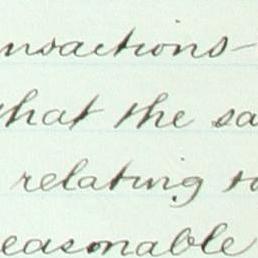 nsactions
what the sa
relating to
easonable